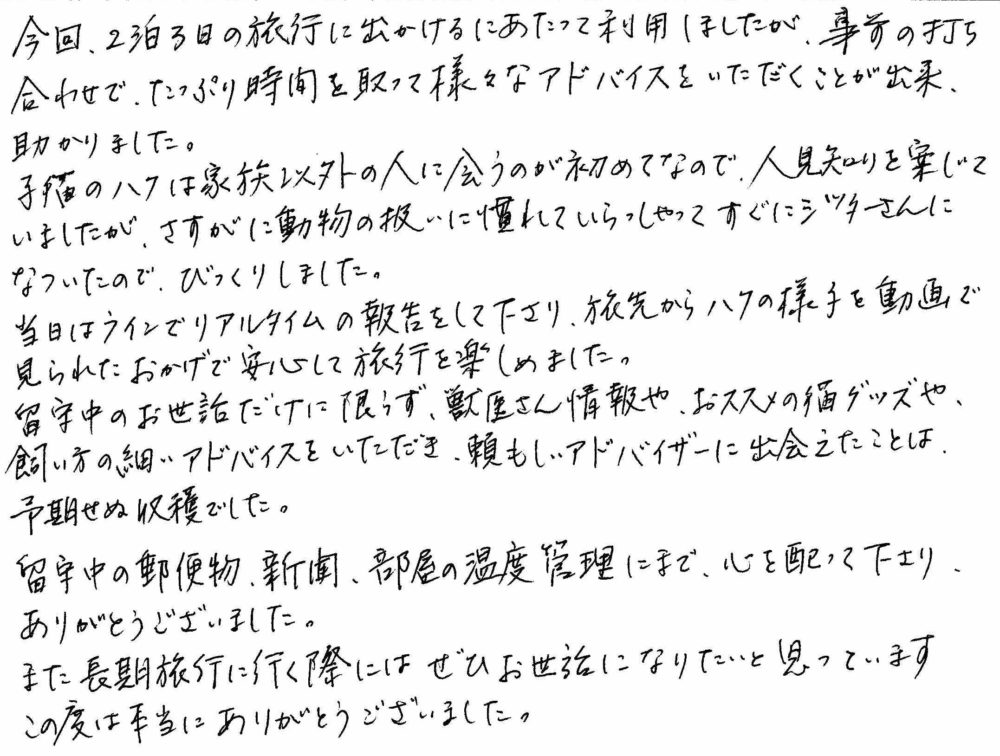 今回、2泊3日の旅行に出かけるにあたって利用しましたが、事前の打ち
合わせで、たっぷり時間を取って様々なアドバイスをいただくことが出来、
助かりました。
子猫のハクは家族以外の人に会うのが初めてなので、人見知りを案じて
いましたが、さすがに動物の扱いに慣れていらっしゃってすぐにシッターさんに
なついたので、びっくりしました。
当日はラインでリアルタイムの報告をして下さり、旅先からハクの様子を動画で
見られたおかげで安心して旅行を楽しめました。
留守中のお世話だけに限らず、獣医さん情報や、おススメの猫グッズや、
飼い方の細いアドバイスをいただき、頼もしいアドバイザーに出会えたことは、
予期せぬ収穫でした。
留守中の郵便物、新聞、部屋の温度管理にまで、心を配って下さり、
ありがとうございました。
また長期旅行に行く際にはぜひお世話になりたいと思っています
この度は本当にありがとうございました。